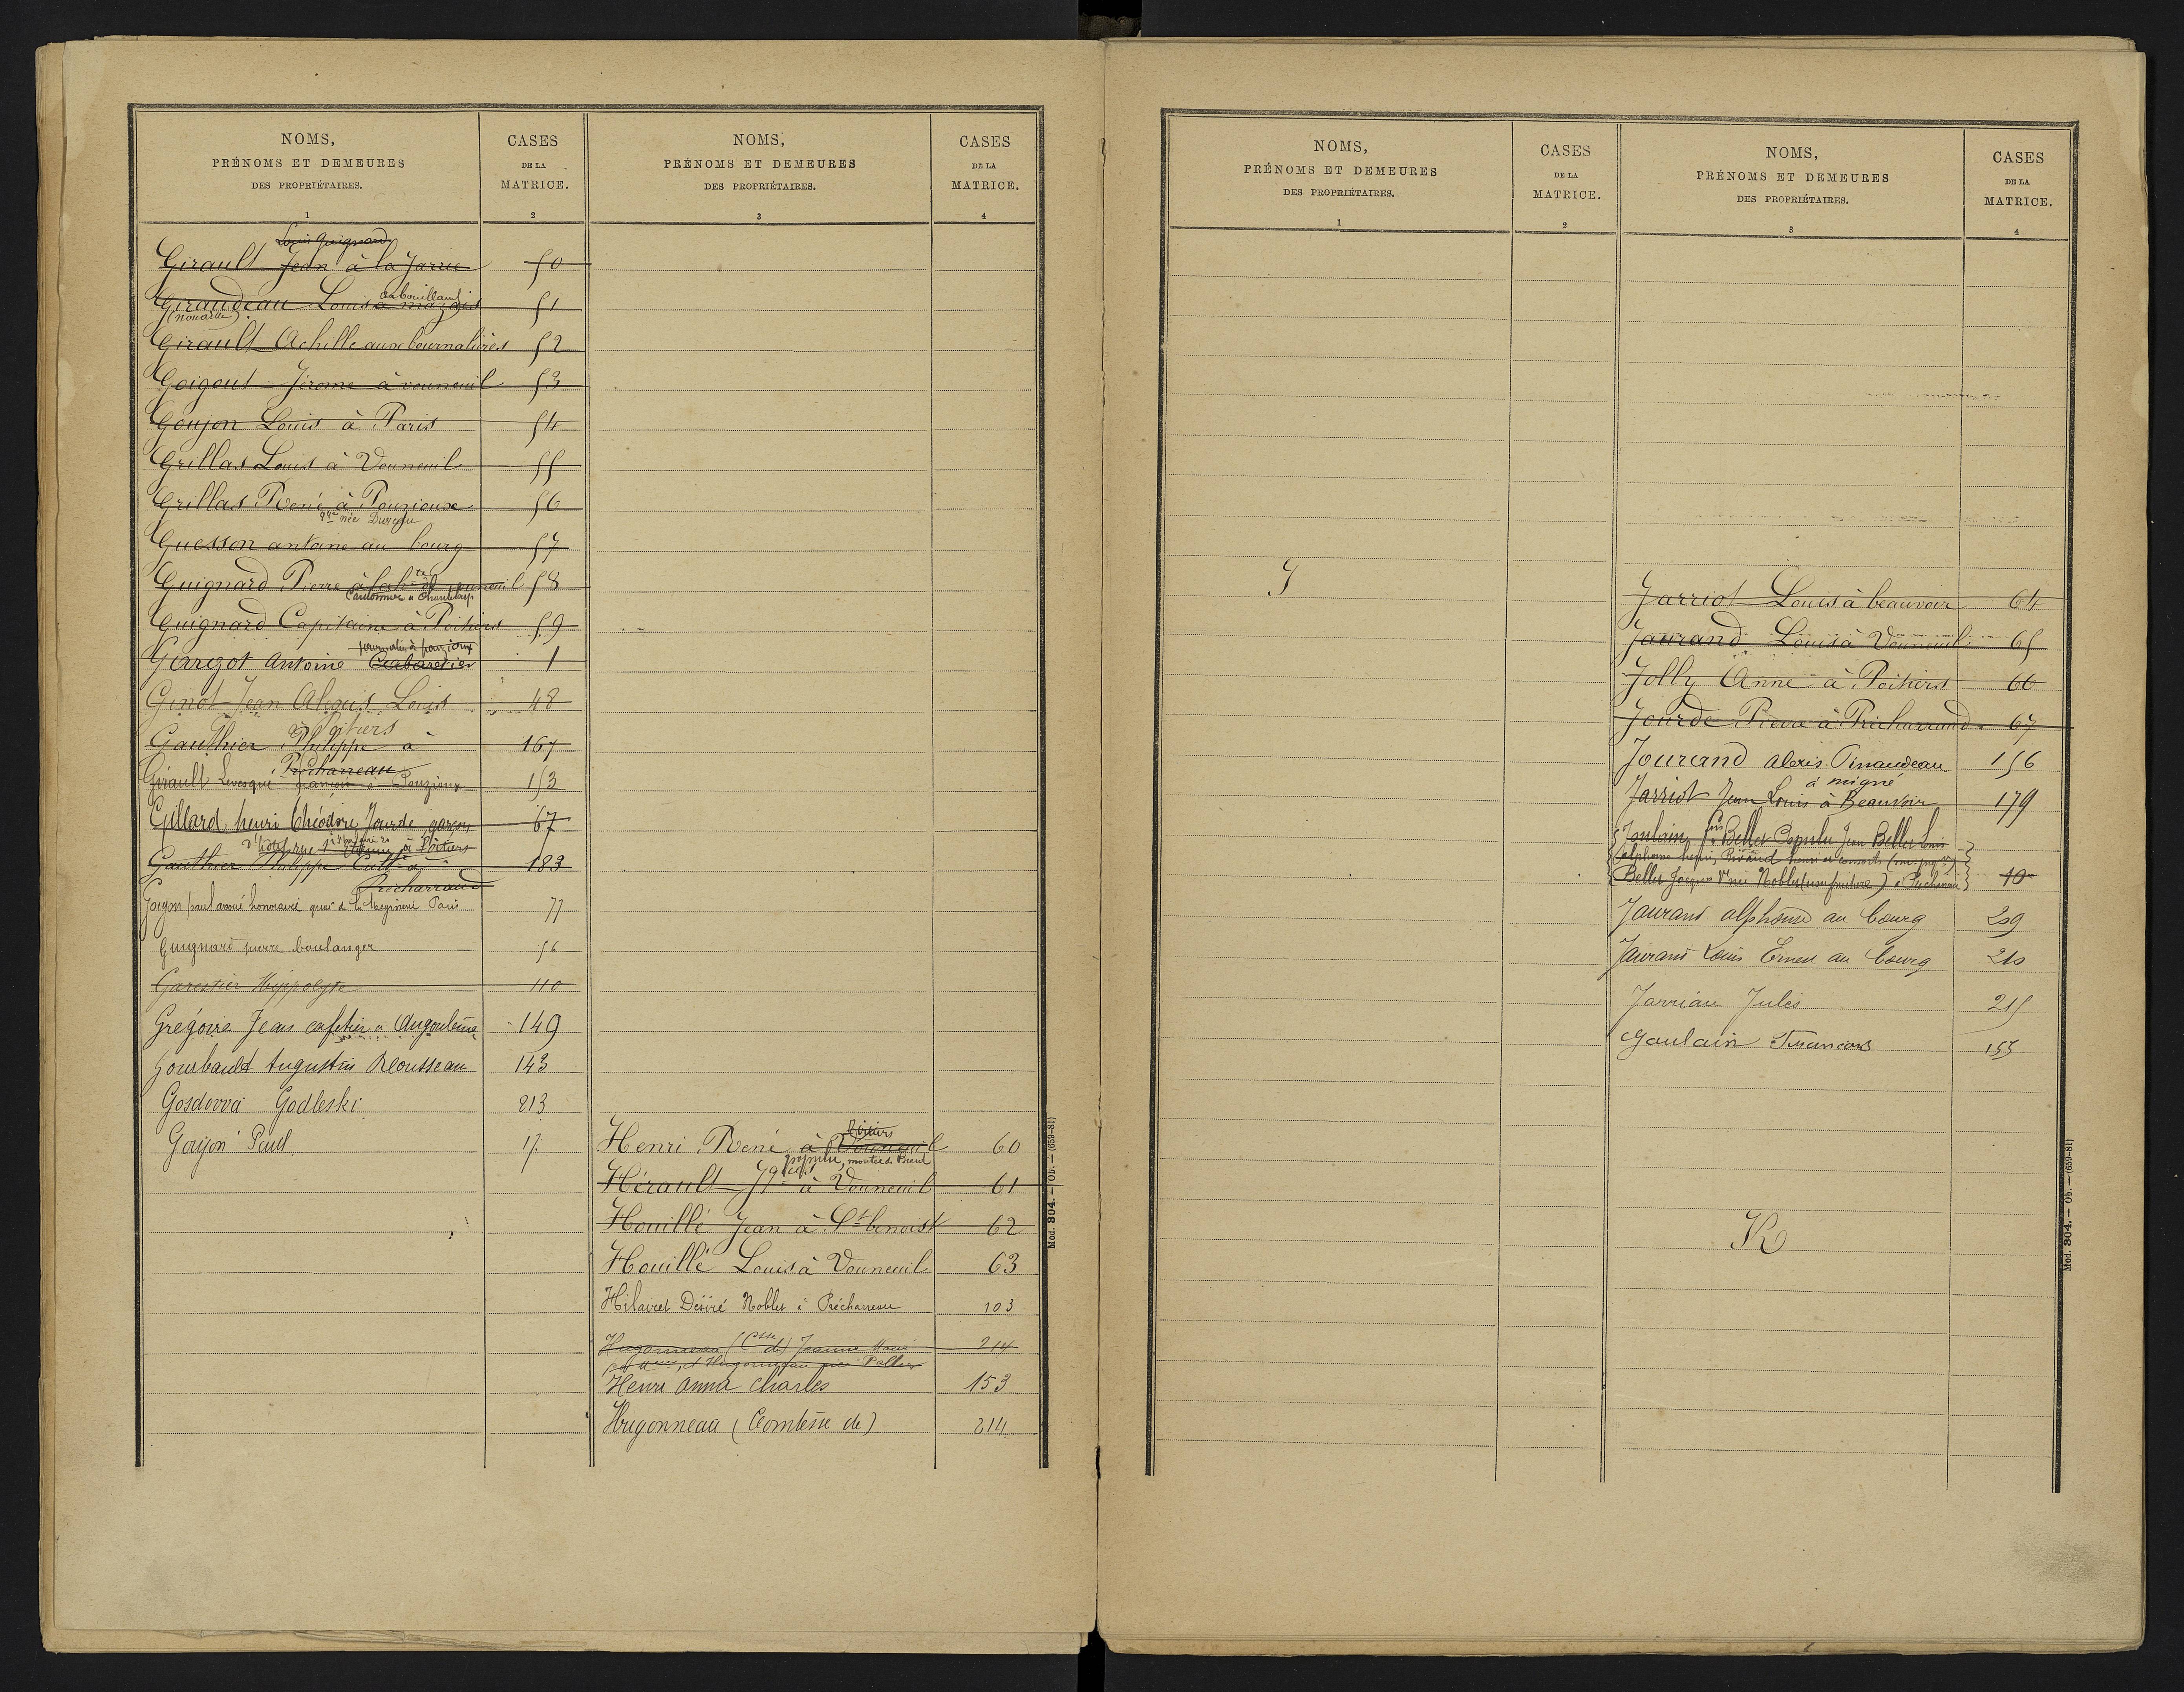 NOMS,
PRÉNOMS ET DEMEURES
DES PROPRIÉTAIRES.
1
CASES
DE LA
MATRICE.
2
Louis Guignard
Girault Jean à la Jarrie 50
Giraudeau Louis à mazais 51
(nouaille)
Girault Achille aux bournalières 52
Goigout Jérome à vouneuil 53
Goujon Louis à Paris 54
Grillas Louis à Vouneuil 55
Grillas René à Pouzioux 56
née Dureau
Guesson antoine au bourg 57
Guignard Pierre 58
Cantonnier à Chanteloup
Guignard Capitaine à Poitiers 59
journalier à pouzioux
Girregot Antoine Cabaretier 1
Ginot Jean Alexis Louis 48
à Poitiers
Gauthier Philippe à 167
Précharreau
Girault Levesque françois à Pouzioux 153
Gillard henri Théodore Jourde garçon 67
d'hôtel rue à Poitiers
Gauthier Philippe Cult à 183
Précharraud
Goujon paul avoué honoraire quai de la Megisserie Paris 77
Guignard pierre boulanger 56
Garestier Hippolyte 110
Grégoire Jean cafetier à Angoulême 149
Gourbault Augustin Rousseau 143
Gosdovva Godleski 213
Goujon Paul 17
NOMS,
PRÉNOMS ET DEMEURES
DES PROPRIÉTAIRES.
3
CASES
DE LA
MATRICE.
4
Poitiers
Henri René à Vouneuil 60
Hérault à Vouneuil 61
Houillé Jean à St benoist 62
Houillé Louis à Vouneuil 63
Hilairet Désiré Noblet à Précharreau 103
Hugonneau (Csse de) Jeanne Marie 214
et Hugonneau née Pallier
Henri Anna Charles 153
Hugonneau (Comtesse de) 214
Mod. 304. — Ob. — (659-81)
NOMS,
PRÉNOMS ET DEMEURES
DES PROPRIÉTAIRES.
1
CASES
DE LA
MATRICE.
2
J
NOMS,
PRÉNOMS ET DEMEURES
DES PROPRIÉTAIRES.
3
CASES
DE LA
MATRICE.
4
Jarriot Louis à beauvoir 64
Jaurand Louis à Vouneuil 65
Jolly Anne à Poitiers 66
Jourde Pierre à Précharraud 67
Jourand alexis Pinaudeau 156
à migné
Jarriot Jean Louis à Beauvoir 179
Joulain fois Bellet Jean Bellet Louis
alphonse henri, henri et consorts
Bellet Jacques Ve née Noblet (usufruitière) à Précharreau 10
Jaurand alphonse au bourg 209
Jaurand Louis Ernest au bourg 210
Jarriau Jules 215
Goulain Francois 155
K
Mod. 304. — Ob. — (659-81)